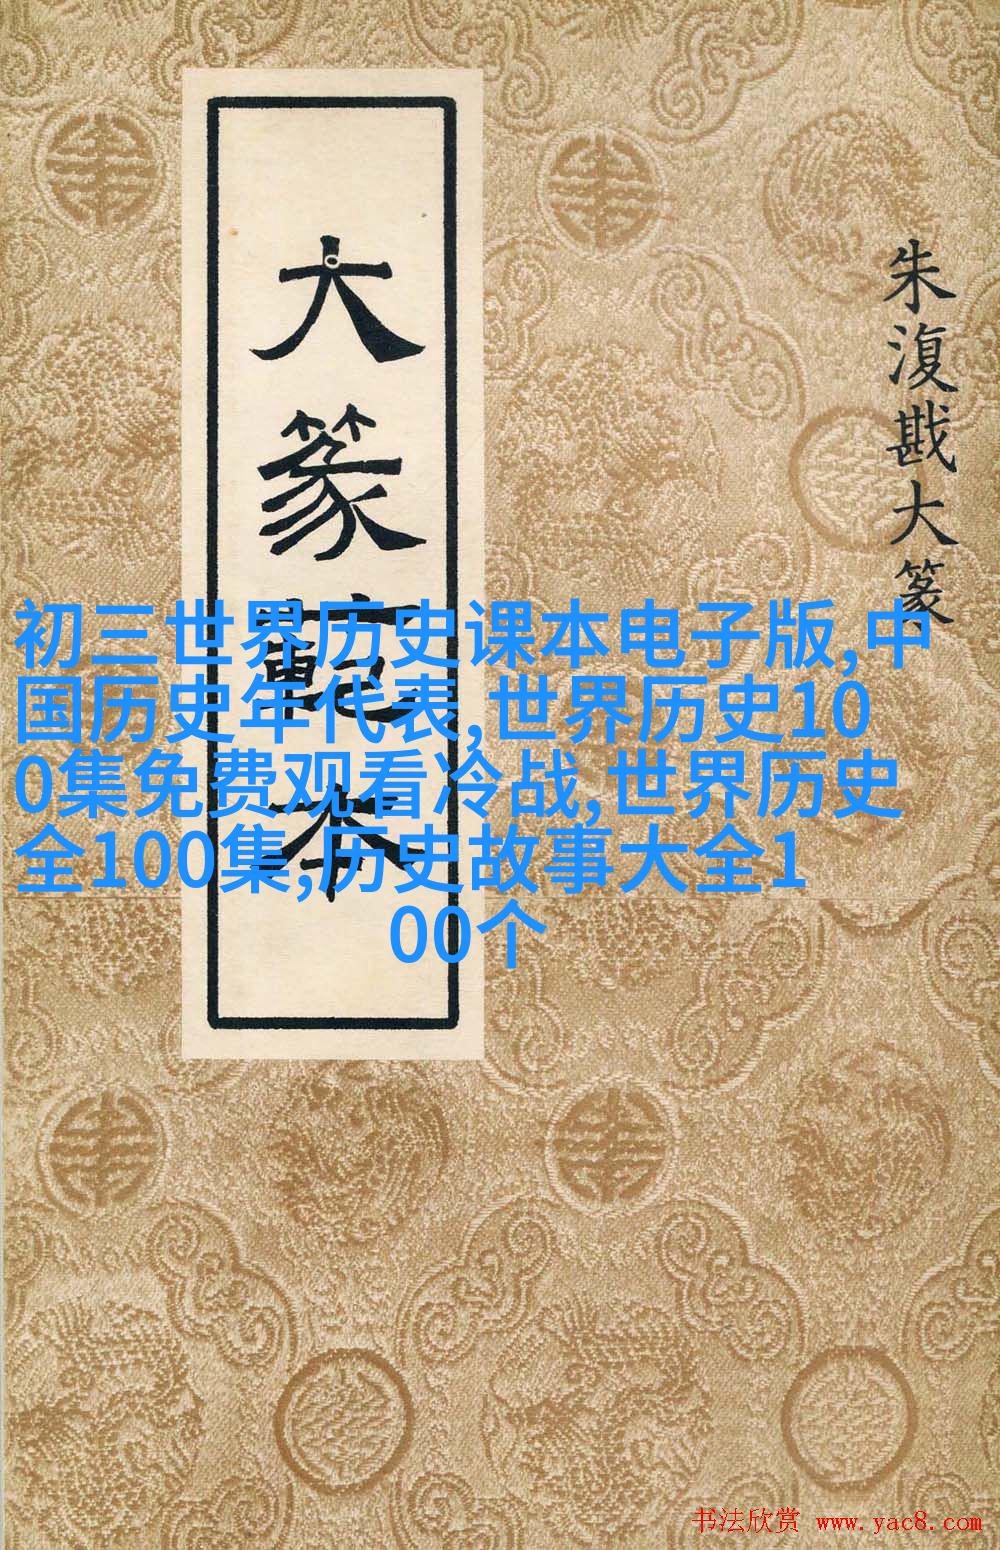 大篆範本
朱復戡大篆
初三世界历史课本电子版,中
国历史年代表,世界历史10
0集免费观看冷战,世界历史
全100集,历史故事大全1
00个
书法欣赏 www.yac8.com